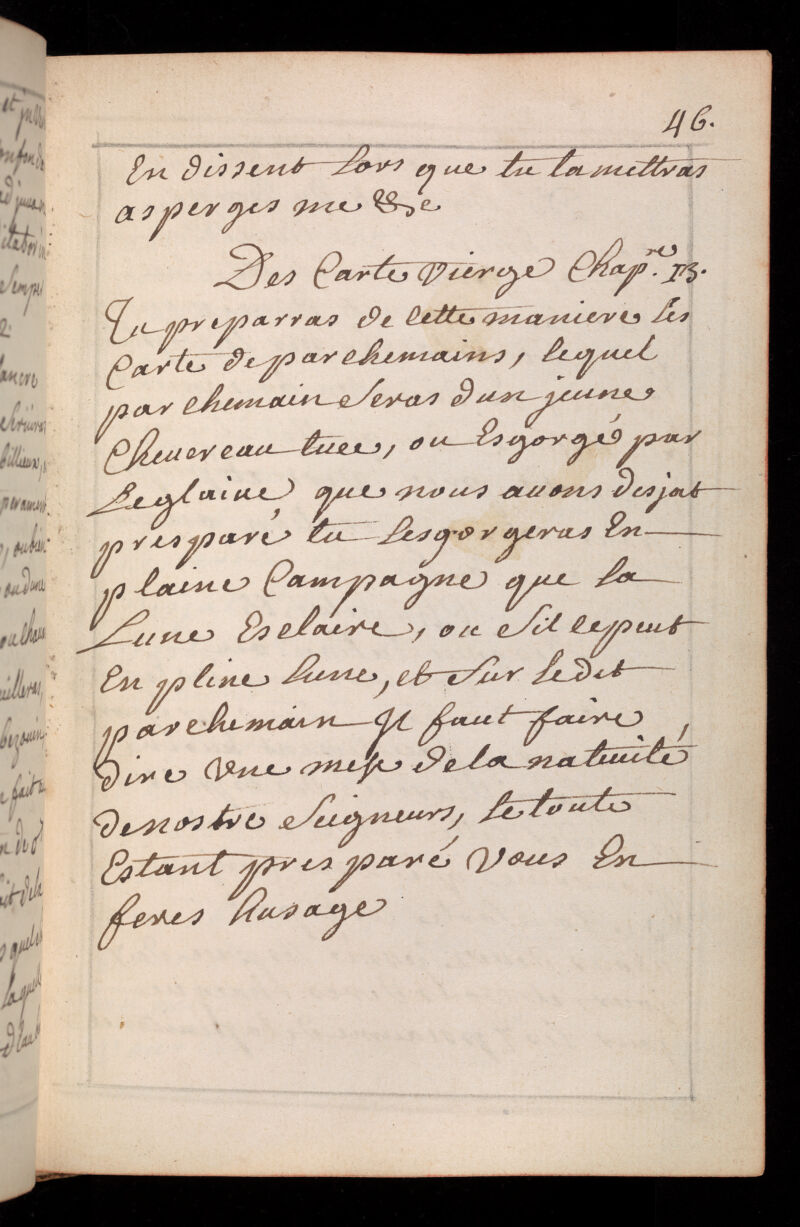 46.
En dissent Lors que tu la mettras
asperges me &c
Des Carte vierge Chap.re 13.
Tu preparras de cette maniere Les
Carte de parchemains, lequel
parchemain Seras dun jeune
Cheuereau tuee, ou Esgorgé par
Leglaiue que nous auons desjat
presparé, tu Lesgorgeras En
plaine Campagne que la
Lune Esclaire, ou Sil cepeut
En pline lune, et Sur Ledit
parchemain Jl faut faire
dire vne messe de la natiuité
de nostre Seigneurs, Le toute
Estant presparé vous En
feres Lusage